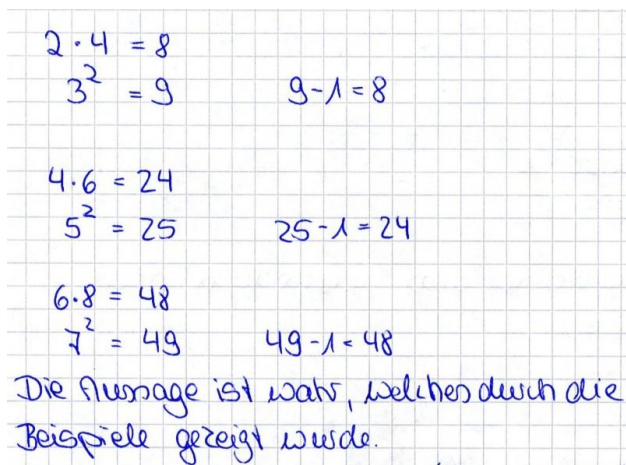 2 · 4 = 8
3² = 9 9 - 1 = 8
4 · 6 = 24
5² = 25 25 - 1 = 24
6 · 8 = 48
7² = 49 49 - 1 = 48
Die Aussage ist wahr, welches durch die
Beispiele gezeigt wurde.